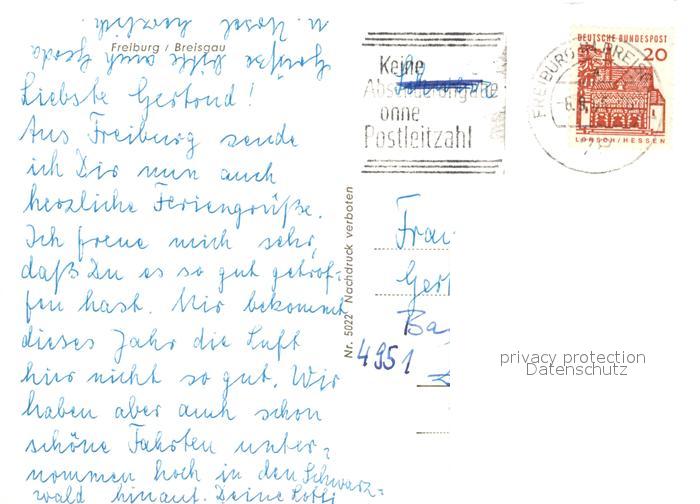 Freiburg / Breisgau
Liebste Gertrud!
Aus Freiburg sende
ich Dir nun auch
herzliche Feriengrüße.
Ich freue mich sehr,
daß Du es so gut getrof-
fen hast. Mir bekommt
dieses Jahr die Luft
hier nicht so gut. Wir
haben aber auch schon
schöne Fahrten unter-
nommen hoch in den Schwarz-
wald hinauf. Deine Lotti
Grüße bitte auch Gerda
u. Mosel herzlich
Nr. 5022 Nachdruck verboten
Keine
ohne
Postleitzahl
DEUTSCHE BUNDESPOST
20
LORSCH/HESSEN
FREIBURG IM BREISGAU
Frau
Gert
Ba
4951
privacy protection
Datenschutz